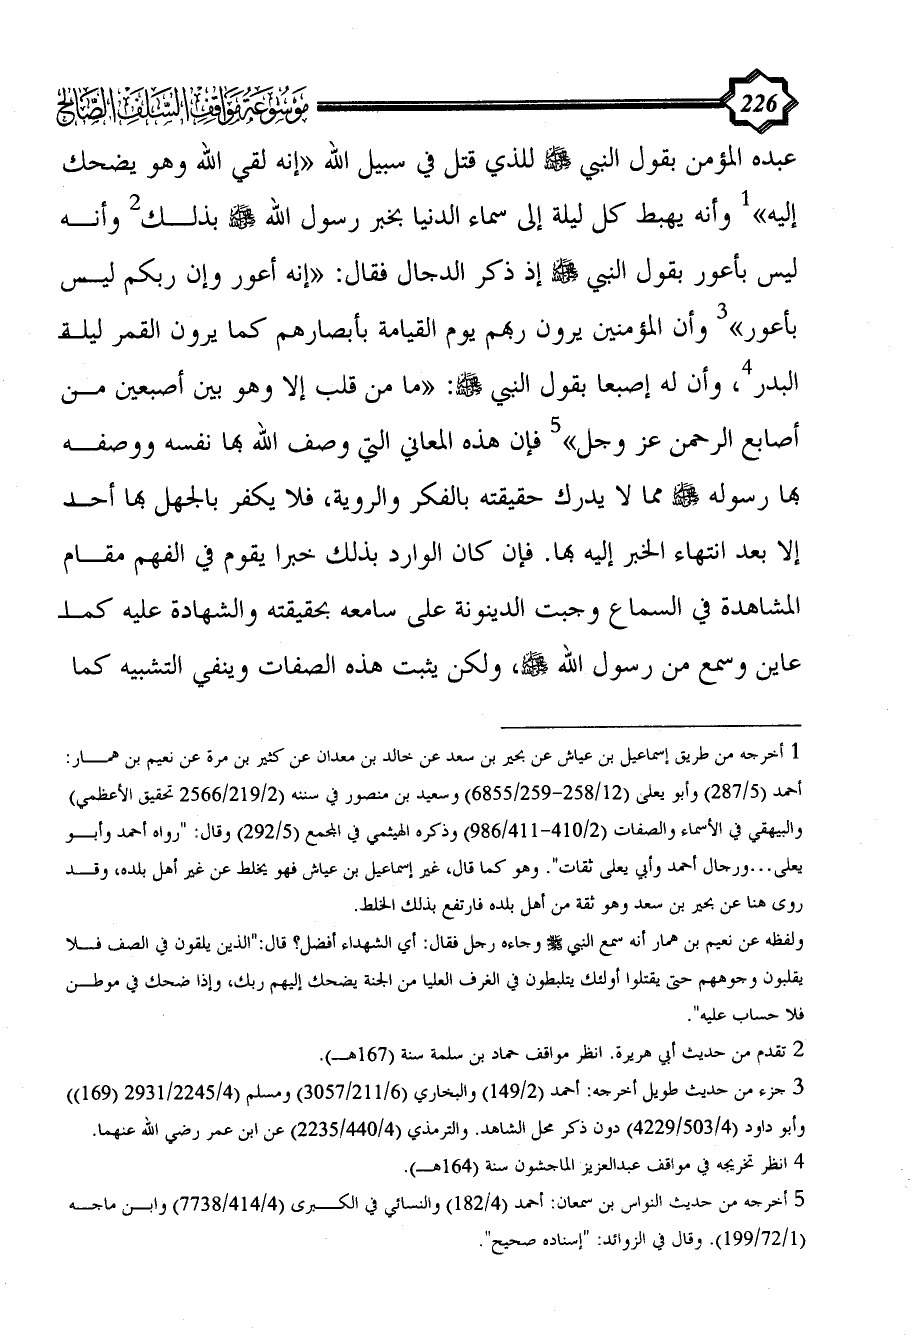 موسوعة مواقف السلف الصالح 226
عبده المؤمن بقول النبي ﷺ للذي قتل في سبيل الله «إنه لقي الله وهو يضحك
إليه»1 وأنه يهبط كل ليلة إلى سماء الدنيا بخبر رسول الله ﷺ بذلك2 وأنه
ليس بأعور بقول النبي ﷺ إذ ذكر الدجال فقال: «إنه أعور وإن ربكم ليس
بأعور»3 وأن المؤمنين يرون ربهم يوم القيامة بأبصارهم كما يرون القمر ليلة
البدر4، وأن له إصبعا بقول النبي ﷺ: «ما من قلب إلا وهو بين أصبعين من
أصابع الرحمن عز وجل»5 فإن هذه المعاني التي وصف الله بها نفسه ووصفه
بها رسوله ﷺ مما لا يدرك حقيقته بالفكر والروية، فلا يكفر بالجهل بها أحد
إلا بعد انتهاء الخبر إليه بها. فإن كان الوارد بذلك خبرا يقوم في الفهم مقام
المشاهدة في السماع وجبت الدينونة على سامعه بحقيقته والشهادة عليه كما
عاين وسمع من رسول الله ﷺ، ولكن يثبت هذه الصفات وينفي التشبيه كما
1 أخرجه من طريق إسماعيل بن عياش عن بحير بن سعد عن خالد بن معدان عن كثير بن مرة عن نعيم بن همار:
أحمد (287/5) وأبو يعلى (258/12-6855/259) وسعيد بن منصور في سننه (2566/219/2 تحقيق الأعظمي)
والبيهقي في الأسماء والصفات (410/2-986/411) وذكره الهيثمي في المجمع (292/5) وقال: "رواه أحمد وأبو
يعلى...ورجال أحمد وأبي يعلى ثقات". وهو كما قال، غير إسماعيل بن عياش فهو يخلط عن غير أهل بلده، وقد
روى هنا عن بحير بن سعد وهو ثقة من أهل بلده فارتفع بذلك الخلط.
ولفظه عن نعيم بن همار أنه سمع النبي ﷺ وجاءه رجل فقال: أي الشهداء أفضل؟ قال:"الذين يلقون في الصف فلا
يقلبون وجوههم حتى يقتلوا أولئك يتلبطون في الغرف العليا من الجنة يضحك إليهم ربك، وإذا ضحك في موطن
فلا حساب عليه".
2 تقدم من حديث أبي هريرة. انظر مواقف حماد بن سلمة سنة (167هـ).
3 جزء من حديث طويل أخرجه: أحمد (149/2) والبخاري (3057/211/6) ومسلم (2931/2245/4 (169))
وأبو داود (4229/503/4) دون ذكر محل الشاهد. والترمذي (2235/440/4) عن ابن عمر رضي الله عنهما.
4 انظر تخريجه في مواقف عبدالعزيز الماجشون سنة (164هـ).
5 أخرجه من حديث النواس بن سمعان: أحمد (182/4) والنسائي في الكبرى (7738/414/4) وابن ماجه
(199/72/1). وقال في الزوائد: "إسناده صحيح".